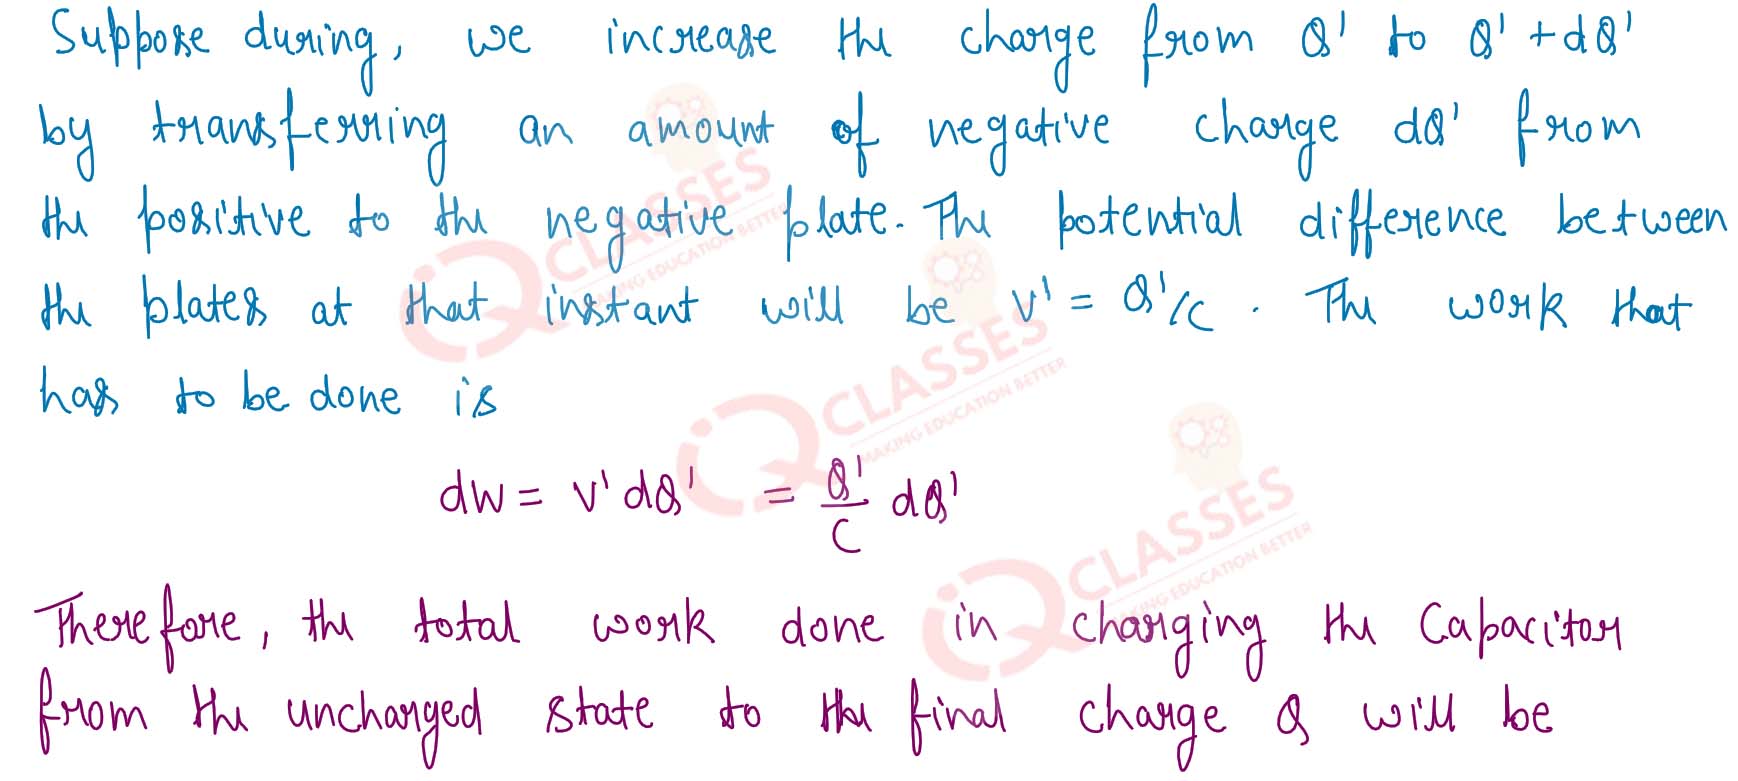 Suppose during, we increase the charge from Q' to Q' + dQ'
by transferring an amount of negative charge dQ' from
the positive to the negative plate. The potential difference between
the plates at that instant will be V' = Q'/C . The work that
has to be done is
dW = V'dQ' = Q'/C dQ'
Therefore, the total work done in charging the Capacitor
from the uncharged state to the final charge Q will be
iQ CLASSES
MAKING EDUCATION BETTER
iQ CLASSES
MAKING EDUCATION BETTER
iQ CLASSES
MAKING EDUCATION BETTER